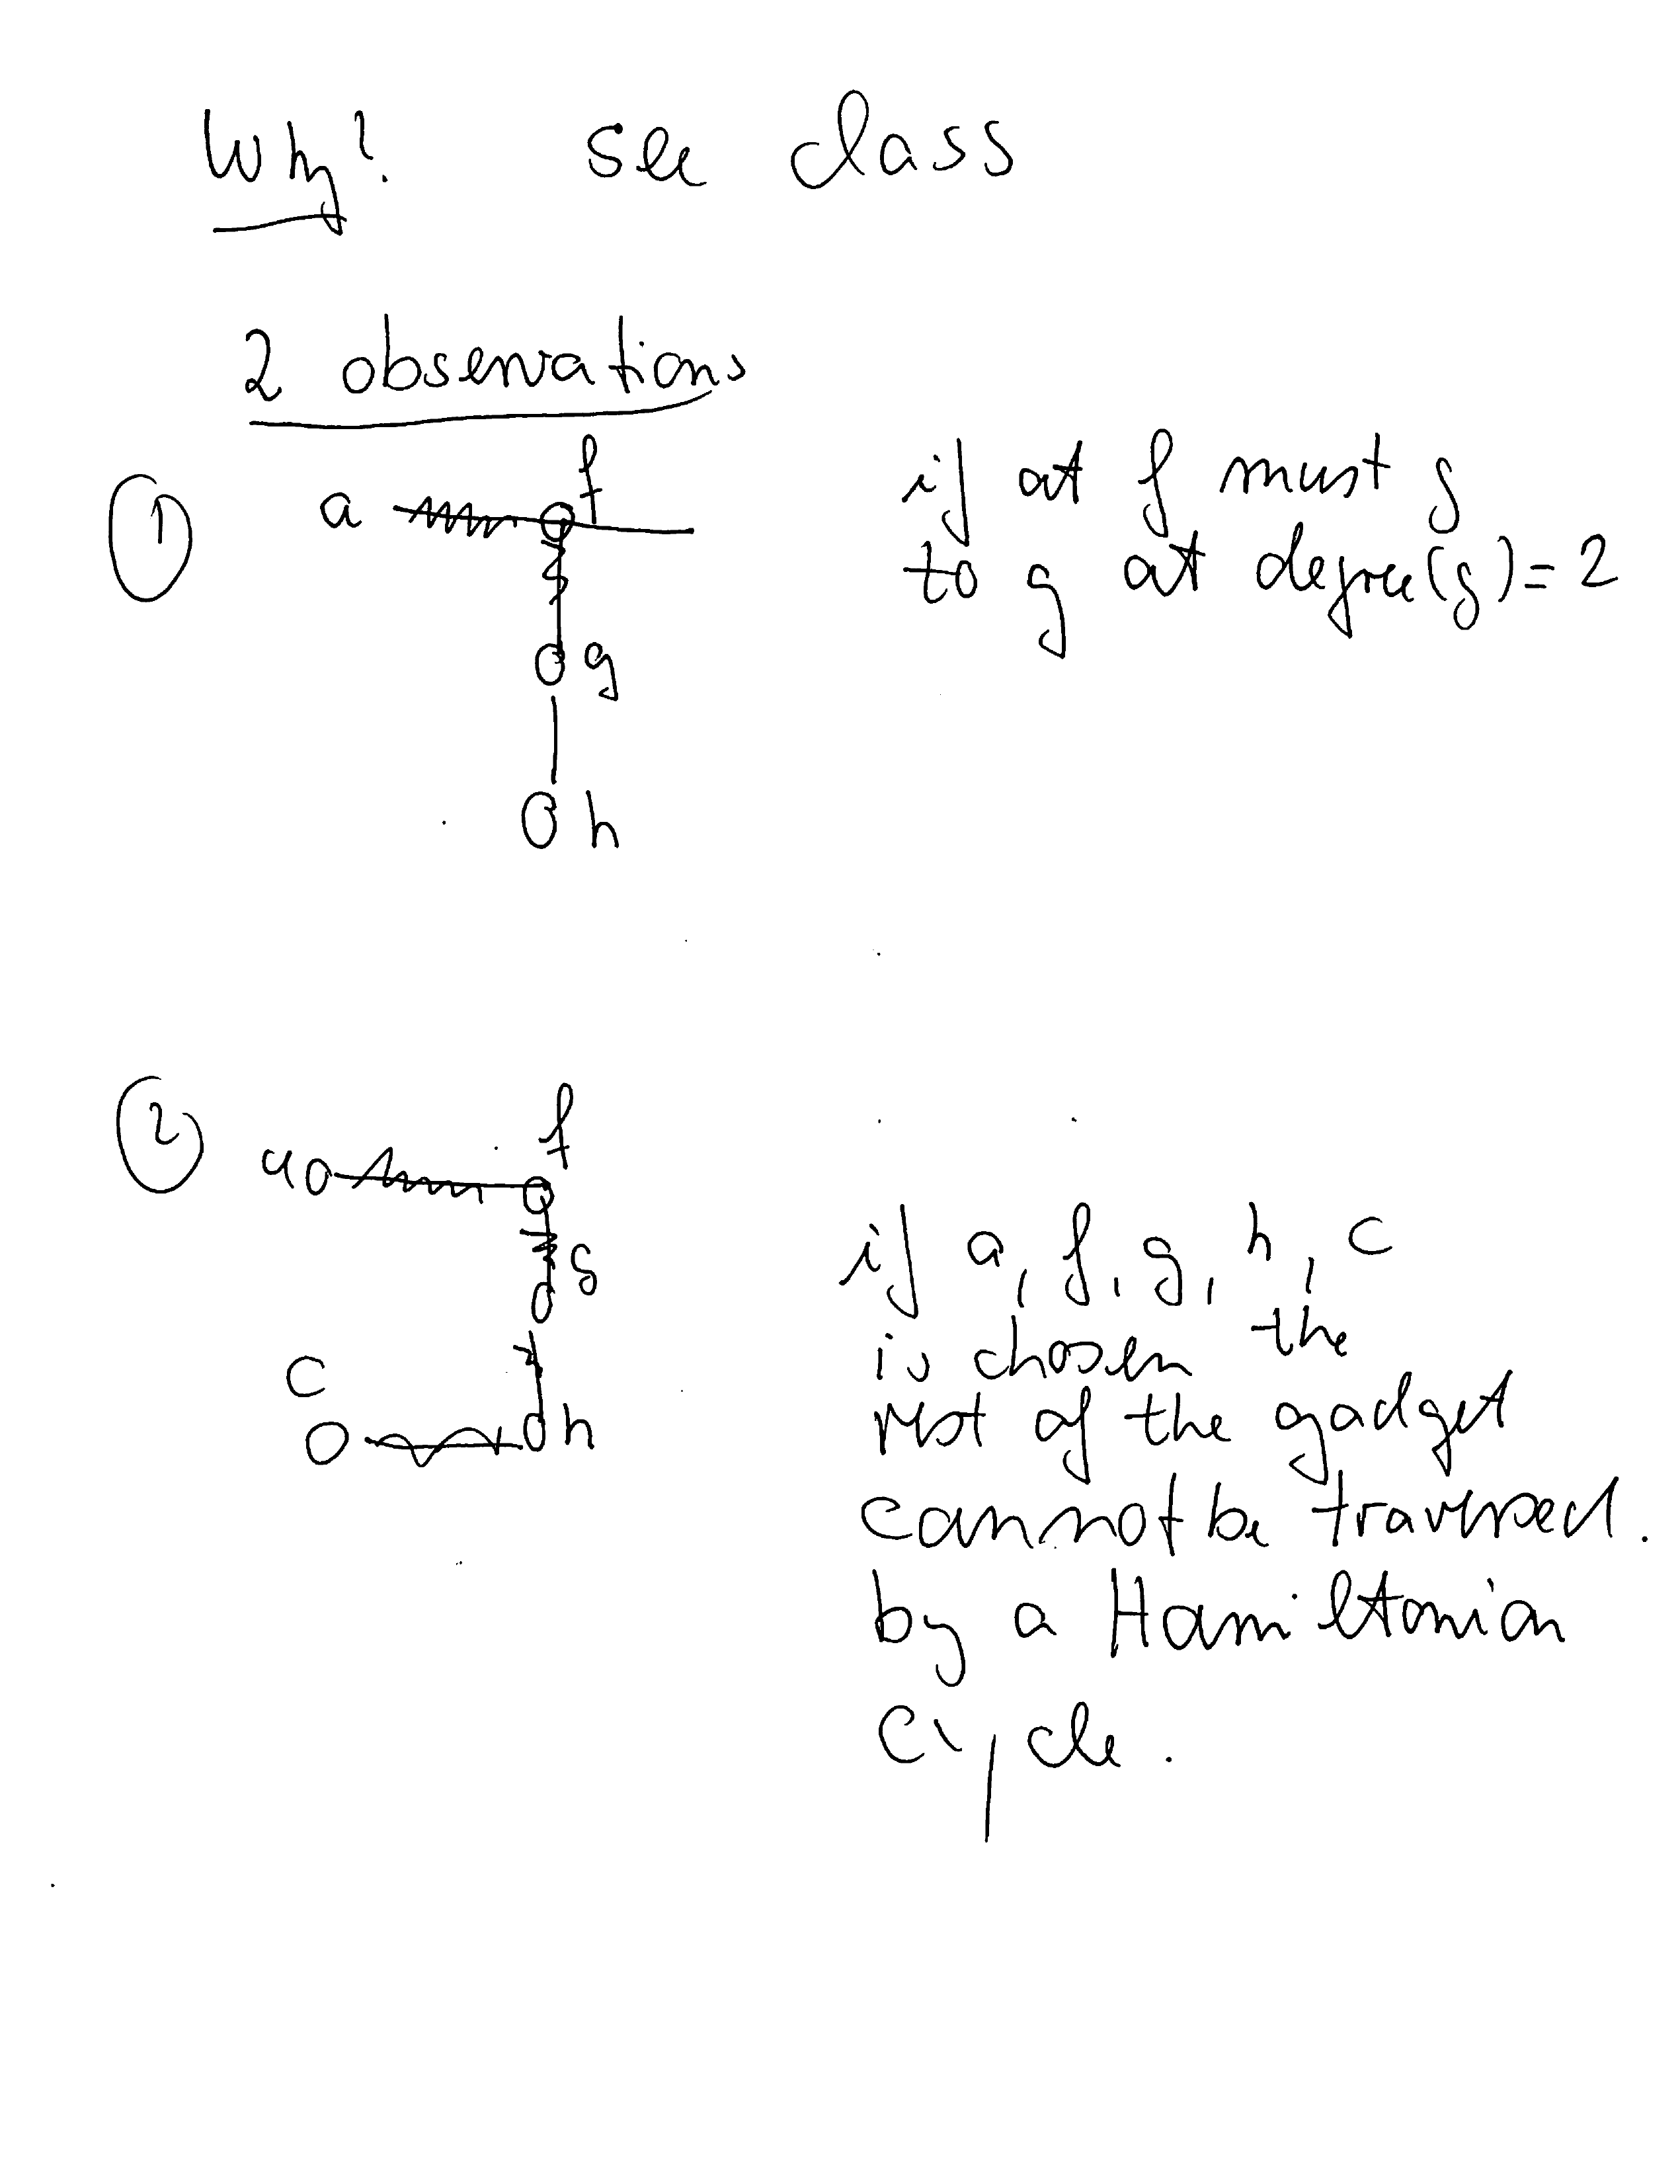 Why? see class
2 observations
1
f
a
if at f must g
to g at degree(g)=2
g
h
2
f
a
g
if a, f, g, h, c
is chosen the
c
h
rest of the gadget
cannot be traversed.
by a Hamiltonian
cycle.